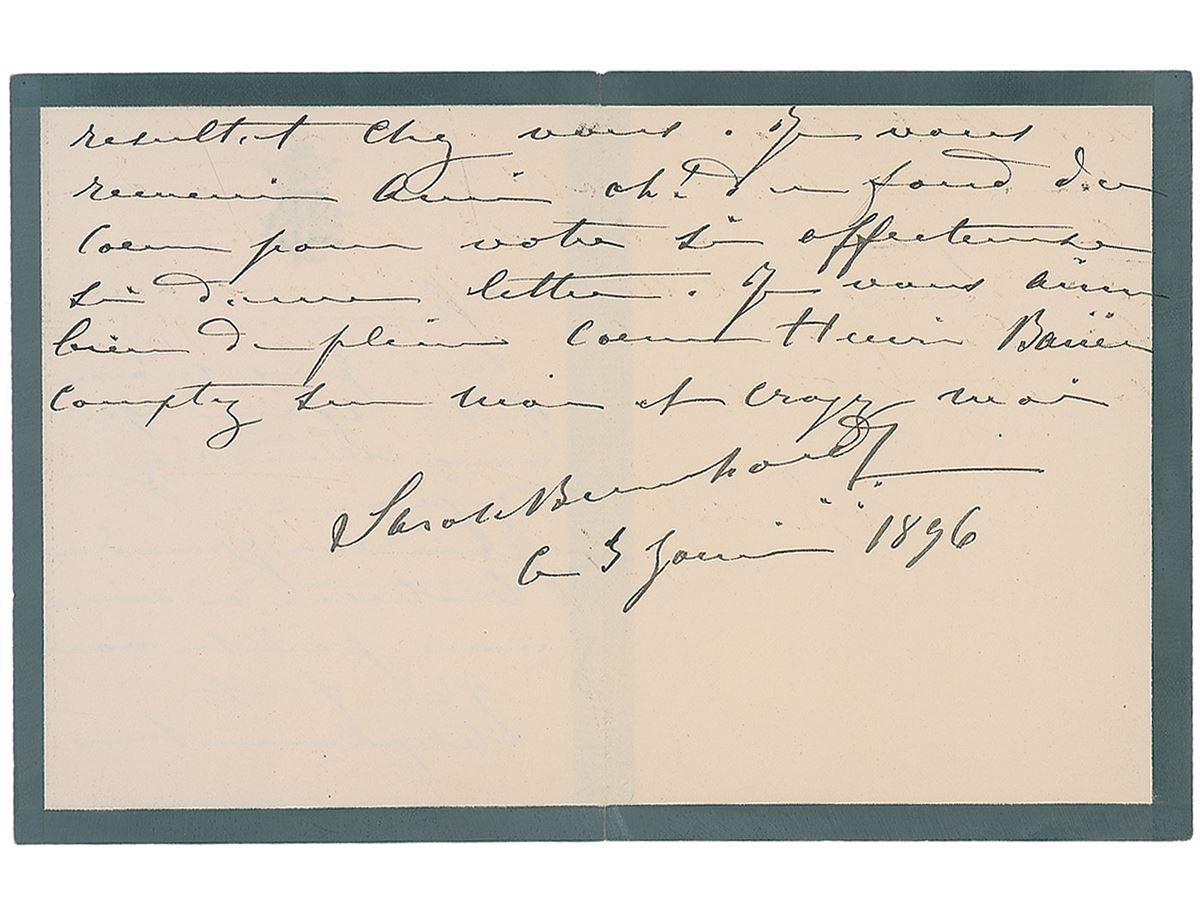 resultat chez vous. Je vous
remercie Ami oh! du fond du
Coeur pour votre si affectueuse
si douce lettre. Je vous aime
bien de plein Coeur Henri Bauër
comptez sur moi et croyez moi
Sarah Bernhardt
le 1896